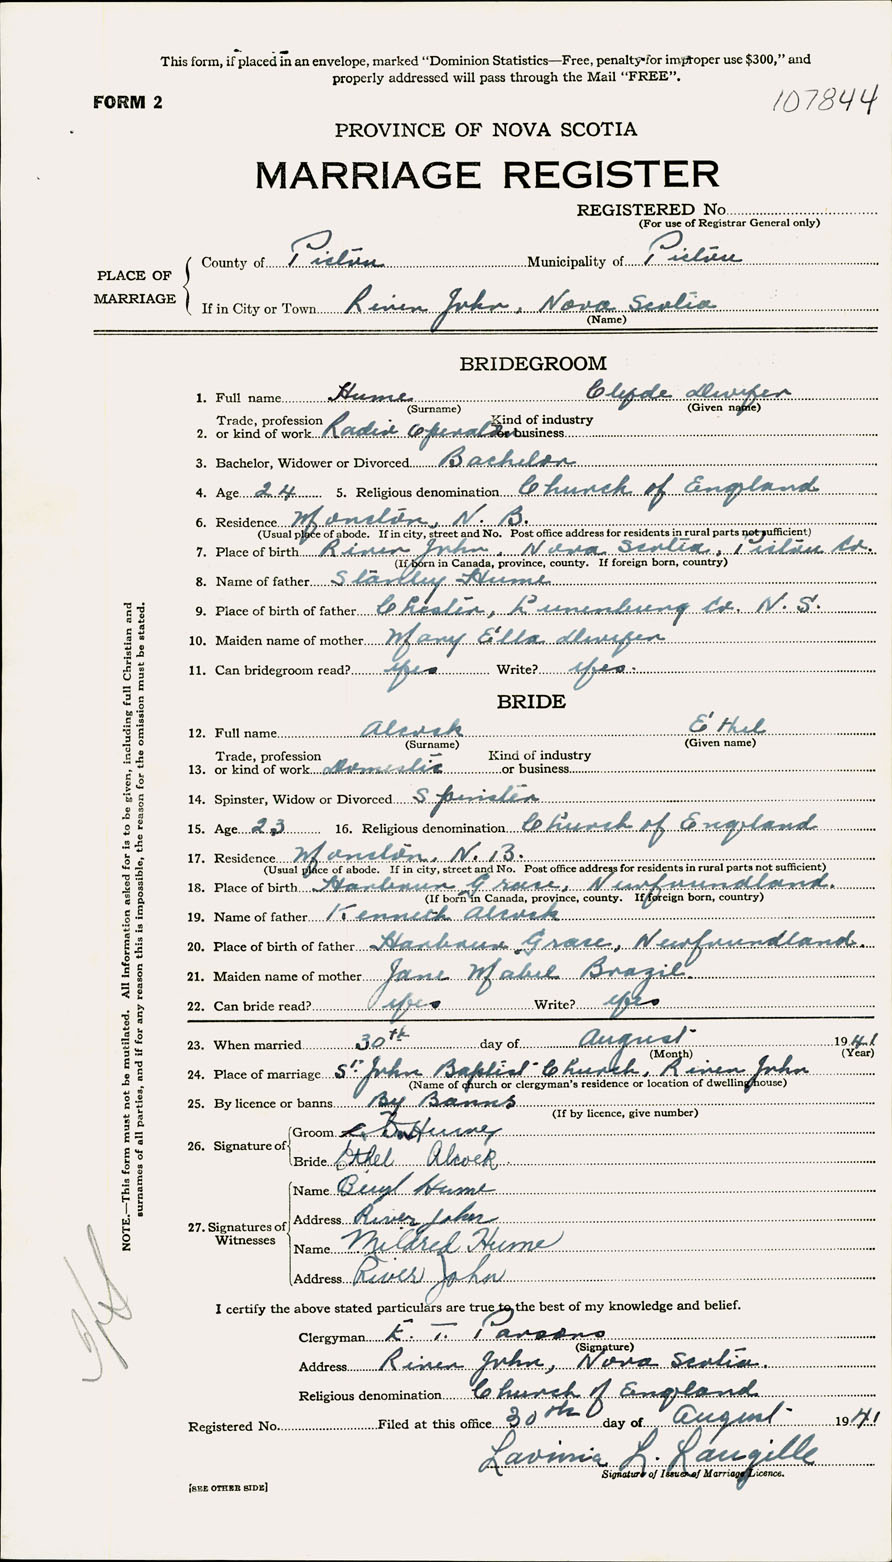 This form, if placed in an envelope, marked "Dominion Statistics—Free, penalty for improper use $300," and
properly addressed will pass through the Mail "FREE".
FORM 2
107844
PROVINCE OF NOVA SCOTIA
MARRIAGE REGISTER
REGISTERED No.
(For use of Registrar General only)
PLACE OF MARRIAGE
County of Pictou Municipality of Pictou
If in City or Town River John, Nova Scotia
(Name)
BRIDEGROOM
1. Full name Hume Clyde Dwyfer
(Surname) (Given name)
2. Trade, profession or kind of work Radio Operator Kind of industry or business
3. Bachelor, Widower or Divorced Bachelor
4. Age 24 5. Religious denomination Church of England
6. Residence Moncton, N. B.
(Usual place of abode. If in city, street and No. Post office address for residents in rural parts not sufficient)
7. Place of birth River John, Nova Scotia, Pictou Co.
(If born in Canada, province, county. If foreign born, country)
8. Name of father Stanley Hume
9. Place of birth of father Chester, Lunenburg Co. N. S.
10. Maiden name of mother Mary Ella Dwyfer
11. Can bridegroom read? yes Write? yes.
BRIDE
12. Full name Alcock Ethel
(Surname) (Given name)
13. Trade, profession or kind of work Domestic Kind of industry or business
14. Spinster, Widow or Divorced Spinster
15. Age 23 16. Religious denomination Church of England
17. Residence Moncton, N. B.
(Usual place of abode. If in city, street and No. Post office address for residents in rural parts not sufficient)
18. Place of birth Harbour Grace, Newfoundland.
(If born in Canada, province, county. If foreign born, country)
19. Name of father Kenneth Alcock
20. Place of birth of father Harbour Grace, Newfoundland.
21. Maiden name of mother Jane Mabel Brazil.
22. Can bride read? yes Write? yes
23. When married 30th day of August 1941
(Month) (Year)
24. Place of marriage St. John Baptist Church, River John
(Name of church or clergyman's residence or location of dwelling house)
25. By licence or banns By Banns
(If by licence, give number)
26. Signature of
Groom
Bride Ethel Alcock.
27. Signatures of Witnesses
Name Beryl Hume
Address River John
Name Mildred Hume
Address River John
I certify the above stated particulars are true to the best of my knowledge and belief.
Clergyman E. T. Parsons
(Signature)
Address River John, Nova Scotia.
Religious denomination Church of England
Registered No. Filed at this office 30th day of August 1941
Lavinia L. Langille
Signature of Issuer of Marriage Licence.
[SEE OTHER SIDE]
NOTE.—This form must not be mutilated. All information asked for is to be given, including full Christian and
surnames of all parties, and if for any reason this is impossible, the reason for the omission must be stated.